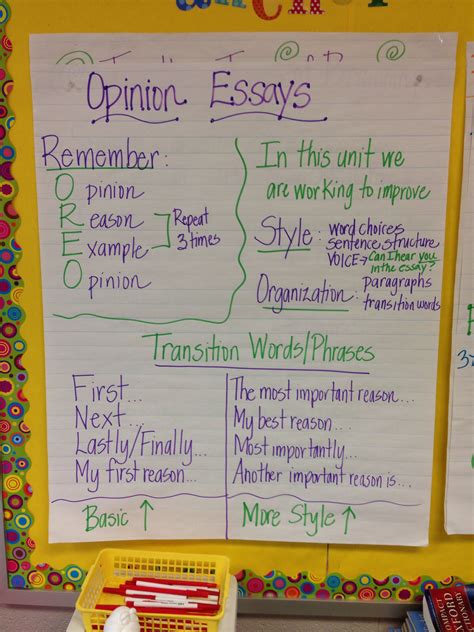 Opinion Essays
Remember:
Opinion
Reason
Example
Opinion
Repeat
3 times
In this unit we
are working to improve
Style: word choices
sentence structure
VOICE→ Can I hear you
in the essay?
Organization: paragraphs
transition words
Transition Words/Phrases
First...
Next...
Lastly/Finally...
My first reason...
Basic ↑
The most important reason...
My best reason...
Most importantly...
Another important reason is...
More Style ↑
COMPACT
OXFORD